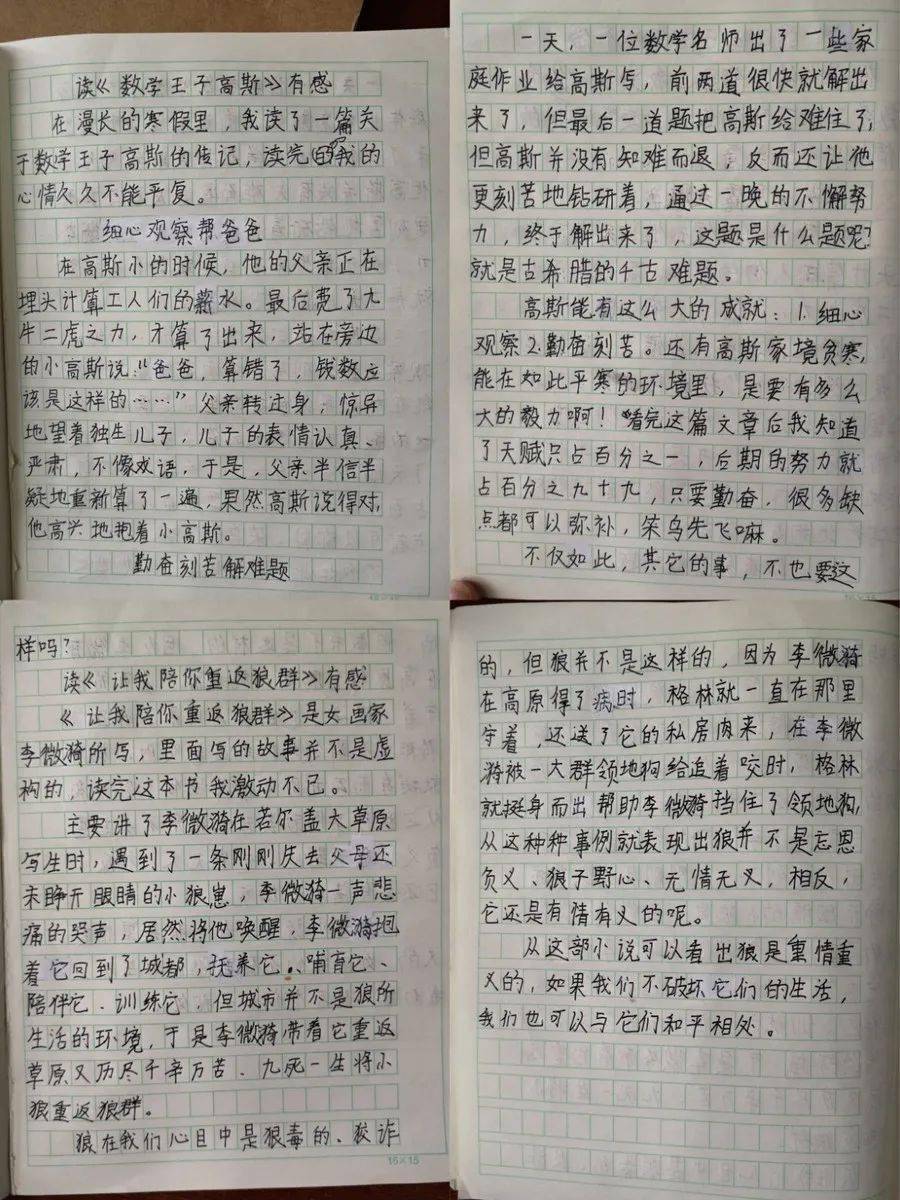 读《数学王子高斯》有感
在漫长的寒假里，我读了一篇关
于数学王子高斯的传记，读完的我的
心情久久不能平复。
细心观察帮爸爸
在高斯小的时候，他的父亲正在
埋头计算工人们的薪水。最后费了九
牛二虎之力，才算了出来，站在旁边
的小高斯说：“爸爸，算错了，钱数应
该是这样的……”父亲转过身，惊异
地望着独生儿子，儿子的表情认真、
严肃，不像戏语，于是，父亲半信半
疑地重新算了一遍，果然高斯说得对，
他高兴地抱着小高斯。
勤奋刻苦解难题
一天，一位数学名师出了一些家
庭作业给高斯写，前两道很快就解出
来了，但最后一道题把高斯给难住了，
但高斯并没有知难而退，反而还让他
更刻苦地钻研着，通过一晚的不懈努
力，终于解出来了，这题是什么题呢？
就是古希腊的千古难题。
高斯能有这么大的成就：1.细心
观察2.勤奋刻苦。还有高斯家境贫寒，
能在如此平寒的环境里，是要有多么
大的毅力啊！看完这篇文章后我知道
了天赋只占百分之一，后期的努力就
占百分之九十九，只要勤奋，很多缺
点都可以弥补，笨鸟先飞嘛。
不仅如此，其它的事，不也要这
16×15
样吗？
读《让我陪你重返狼群》有感
《让我陪你重返狼群》是女画家
李微漪所写，里面写的故事并不是虚
构的，读完这本书我激动不已。
主要讲了李微漪在若尔盖大草原
写生时，遇到了一条刚刚失去父母还
未睁开眼睛的小狼崽，李微漪一声悲
痛的哭声，居然将他唤醒，李微漪抱
着它回到了城都，抚养它、哺育它、
陪伴它、训练它，但城市并不是狼所
生活的环境，于是李微漪带着它重返
草原又历尽千辛万苦、九死一生将小
狼重返狼群。
狼在我们心目中是狠毒的、狡诈
16×15
的，但狼并不是这样的，因为李微漪
在高原得了病时，格林就一直在那里
守着，还送了它的私房肉来，在李微
漪被一大群领地狗给追着咬时，格林
就挺身而出帮助李微漪挡住了领地狗，
从这种种事例就表现出狼并不是忘恩
负义、狼子野心、无情无义，相反，
它还是有情有义的呢。
从这部小说可以看出狼是重情重
义的，如果我们不破坏它们的生活，
我们也可以与它们和平相处。